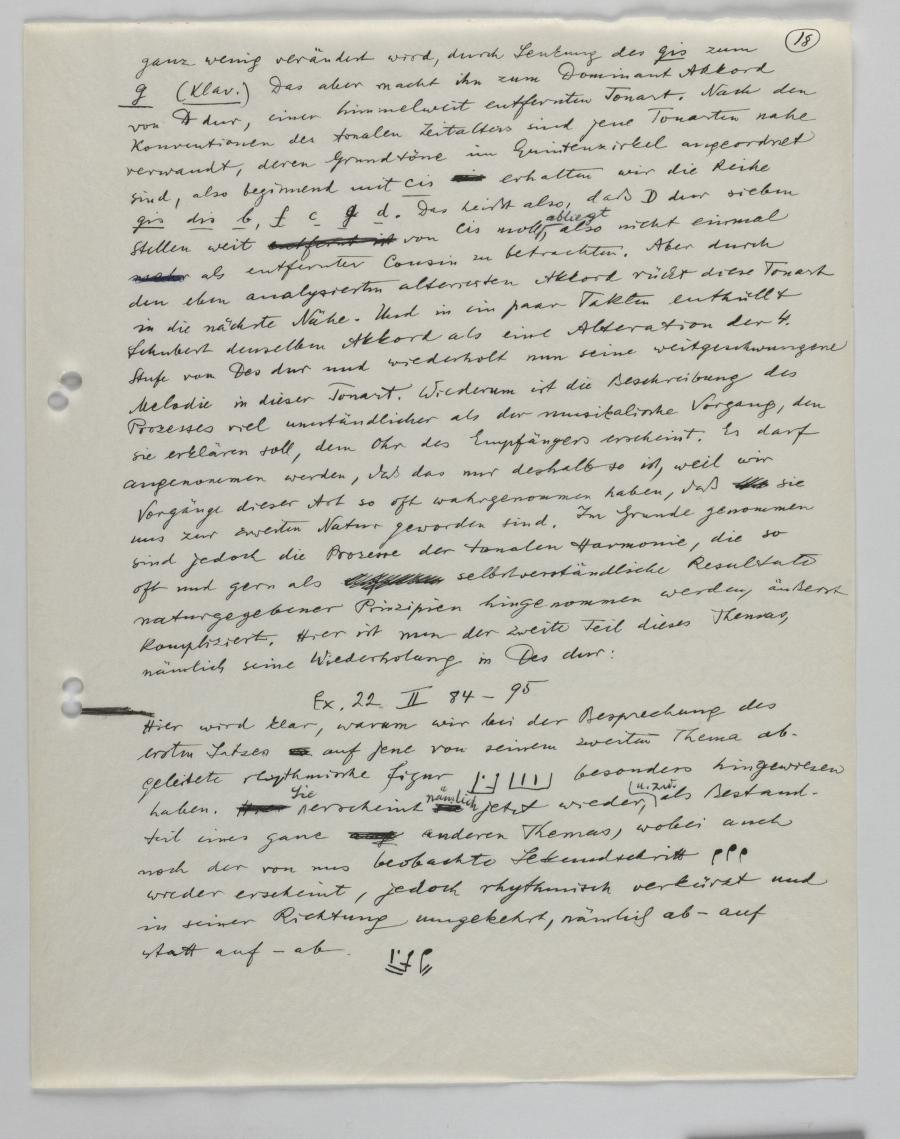 18
ganz wenig verändert wird, durch Senkung des gis zum
g (Klav.) Das aber macht ihn zum Dominant Akkord
von D dur, einer himmelweit entfernten Tonart. Nach den
Konventionen des tonalen Zeitalters sind jene Tonarten nahe
verwandt, deren Grundtöne im Quintenzirkel angeordnet
sind, also beginnend mit cis erhalten wir die Reihe
gis dis b, f c g d. Das heißt also, daß D dur sieben
Stellen weit von Cis moll abliegt, also nicht einmal
als entfernter Cousin zu betrachten. Aber durch
den eben analysierten alterierten Akkord rückt diese Tonart
in die nächste Nähe. Und in ein paar Takten enthüllt
Schubert denselben Akkord als eine Alteration der 4.
Stufe von Des dur und wiederholt nun seine weitgeschwungene
Melodie in dieser Tonart. Wiederum ist die Beschreibung des
Prozesses viel umständlicher als der musikalische Vorgang, den
sie erklären soll, dem Ohr des Empfängers erscheint. Es darf
angenommen werden, daß das nur deshalb so ist, weil wir
Vorgänge dieser Art so oft wahrgenommen haben, daß sie
uns zur zweiten Natur geworden sind. Im Grunde genommen
sind jedoch die Prozesse der tonalen Harmonie, die so
oft und gern als selbstverständliche Resultate
naturgegebener Prinzipien hingenommen werden, äußerst
kompliziert. Hier ist nun der zweite Teil dieses Themas,
nämlich seine Wiederholung in Des dur:
Ex. 22 II 84 - 95
Hier wird klar, warum wir bei der Besprechung des
ersten Satzes auf jene von seinem zweiten Thema ab-
geleitete rhythmische Figur besonders hingewiesen
haben. Sie erscheint nämlich jetzt wieder, u. zw. als Bestand-
teil eines ganz anderen Themas, wobei auch
noch der von uns beobachte Sekundschritt
wieder erscheint, jedoch rhythmisch verkürzt und
in seiner Richtung umgekehrt, nämlich ab - auf
statt auf - ab.